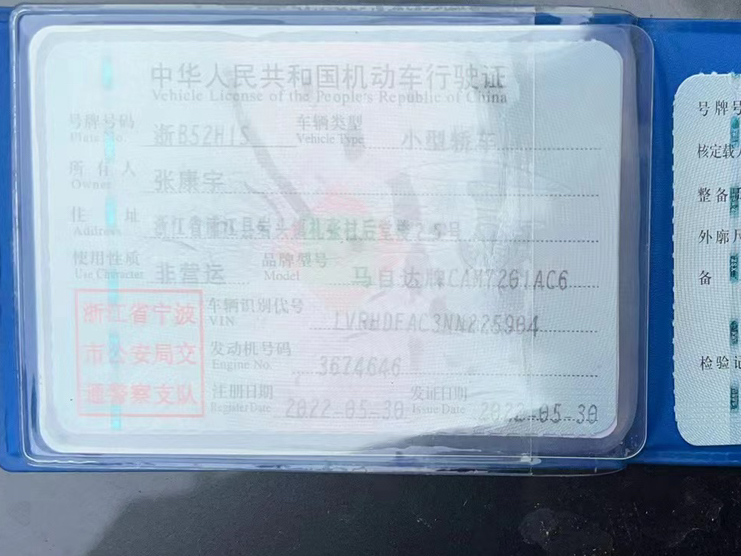 中华人民共和国机动车行驶证
Vehicle License of the People's Republic of China
号牌号码 浙B52H15 车辆类型 小型轿车
Plate No. Vehicle Type
所有人 张康宇
Owner
住址 浙江省浦江县岩头镇礼张村后堂 25号
Address
使用性质 非营运 品牌型号 马自达牌CAM7261AC6
Use Character Model
浙江省宁波
市公安局交
通警察支队
车辆识别代号 LVRHDFAC3NN225984
VIN
发动机号码 3674646
Engine No.
注册日期 2022-05-30 发证日期 2022-05-30
Register Date Issue Date
号牌号
核定载
整备
外廓
备
检验记